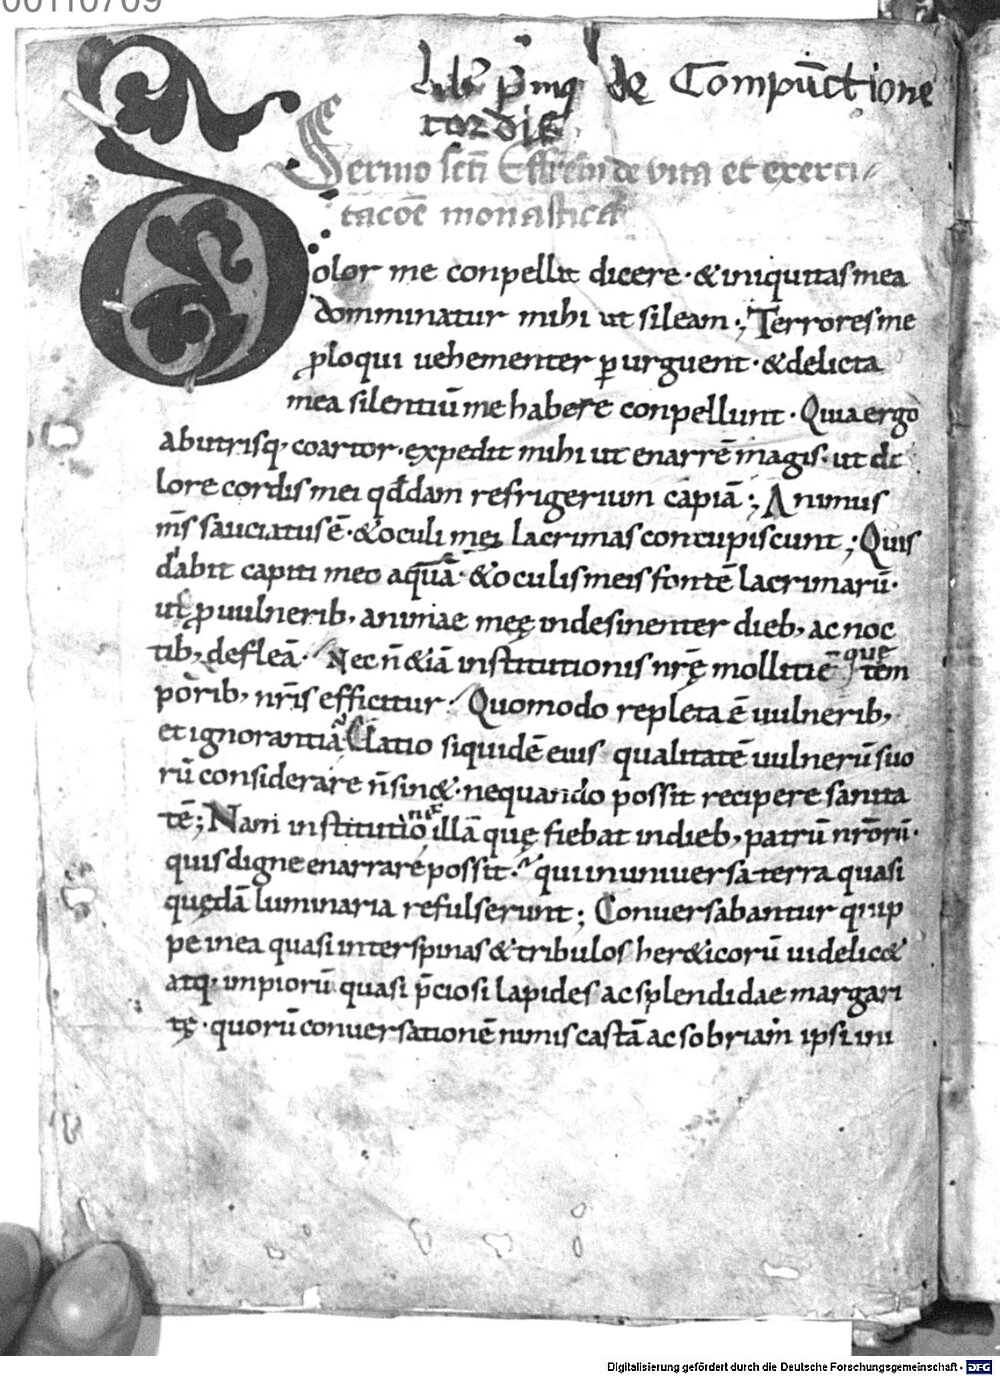 00110709
Lib' p̄mꝰ de Compūctione
cordis
Sermo scti Effrem de vita et exerci-
tacōe monastica
Dolor me conpellit dicere · & iniquitas mea
domminatur mihi ut sileam ; Terrores me
ꝓloqui uehementer ꝑurguent · & delicta
mea silentiū me habere conpellunt · Quia ergo
ab utrisq; coartor · expedit mihi ut enarrē magis · ut do
lore cordis mei qđdam refrigerium capiā ; Animus
m̄s sauciatus ē · & oculi mei lacrimas concupiscunt ; Quis
dabit capiti meo aquā · & oculis meis fontē lacrimarū ·
ut ꝓ uulnerib; animae meę indesinenter dieb; ac noc
tib; defleā · Nec n̄ & iā institutionis nr̄ę mollitiē que tēm
porib; nr̄is efficitur · Quomodo repleta ē uulnerib;
et ignorantiā Elatio siquidē eius qualitatē uulnerū suo
rū considerare n̄ sin& · nequando possit recipere sanita
tē ; Nam institutionē illā quę fiebat in dieb; patrū nr̄orū ·
quis digne enarrare possit · qui in uniuersa terra quasi
quędā luminaria refulserunt ; Conuersabantur quip
pe in ea quasi inter spinas & tribulos her&icorū uidelic&
atq; impiorū quasi p̄ciosi lapides ac splendidae margari
tę · quorū conuersationē nimis castā ac sobriam ipsi ini
Digitalisierung gefördert durch die Deutsche Forschungsgemeinschaft - DFG